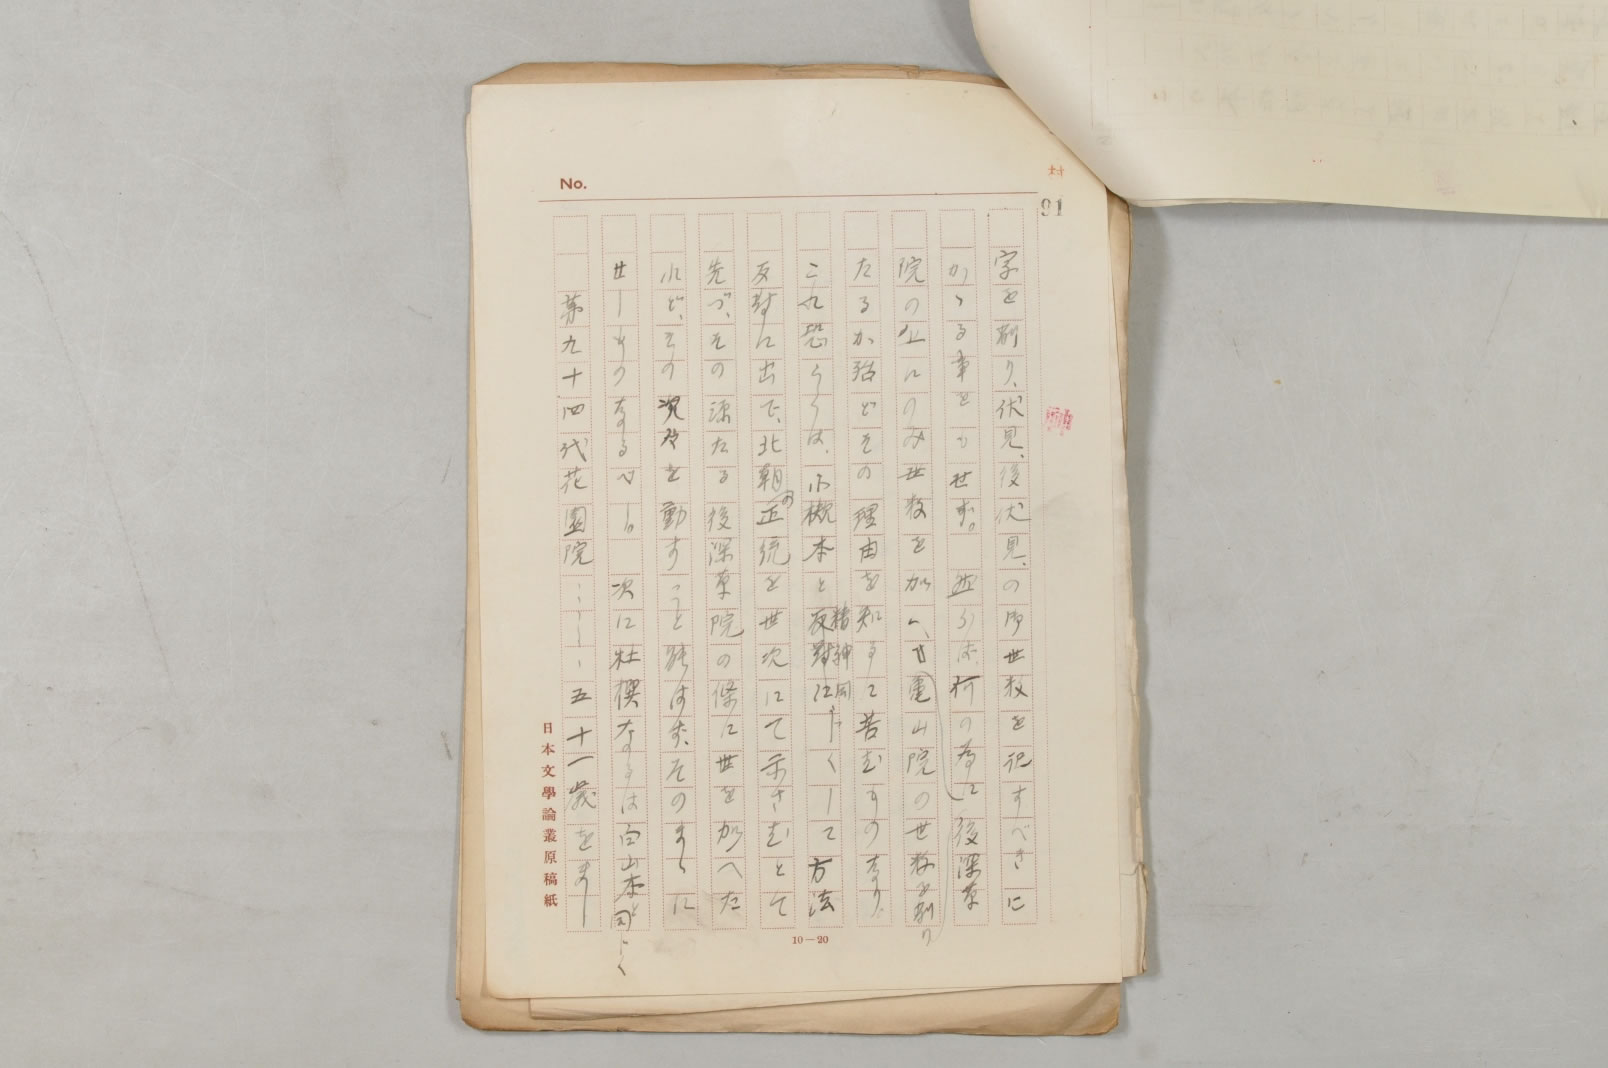 No.
91
字を削り、伏見、後伏見、の御世数を記すべきに
かゝる事をもせず。然らば、何の為に後深草
院の上にのみ世数を加へ、亀山院の世数を削り
たるか殆どその理由を知るに苦むものなり。
これ恐らくは、小槻本と精神同じくして方法
反対に出で、北朝の正統を世次にて示さむとて
先づ、その源たる後深草院の條に世を加へた
れど、その次々を動すこと能はず、そのまゝに
せしものなるべし。 次に杜撰なるは白山本と同じく
第九十四代花園院……五十一歳をまし
10—20
日本文學論叢原稿紙